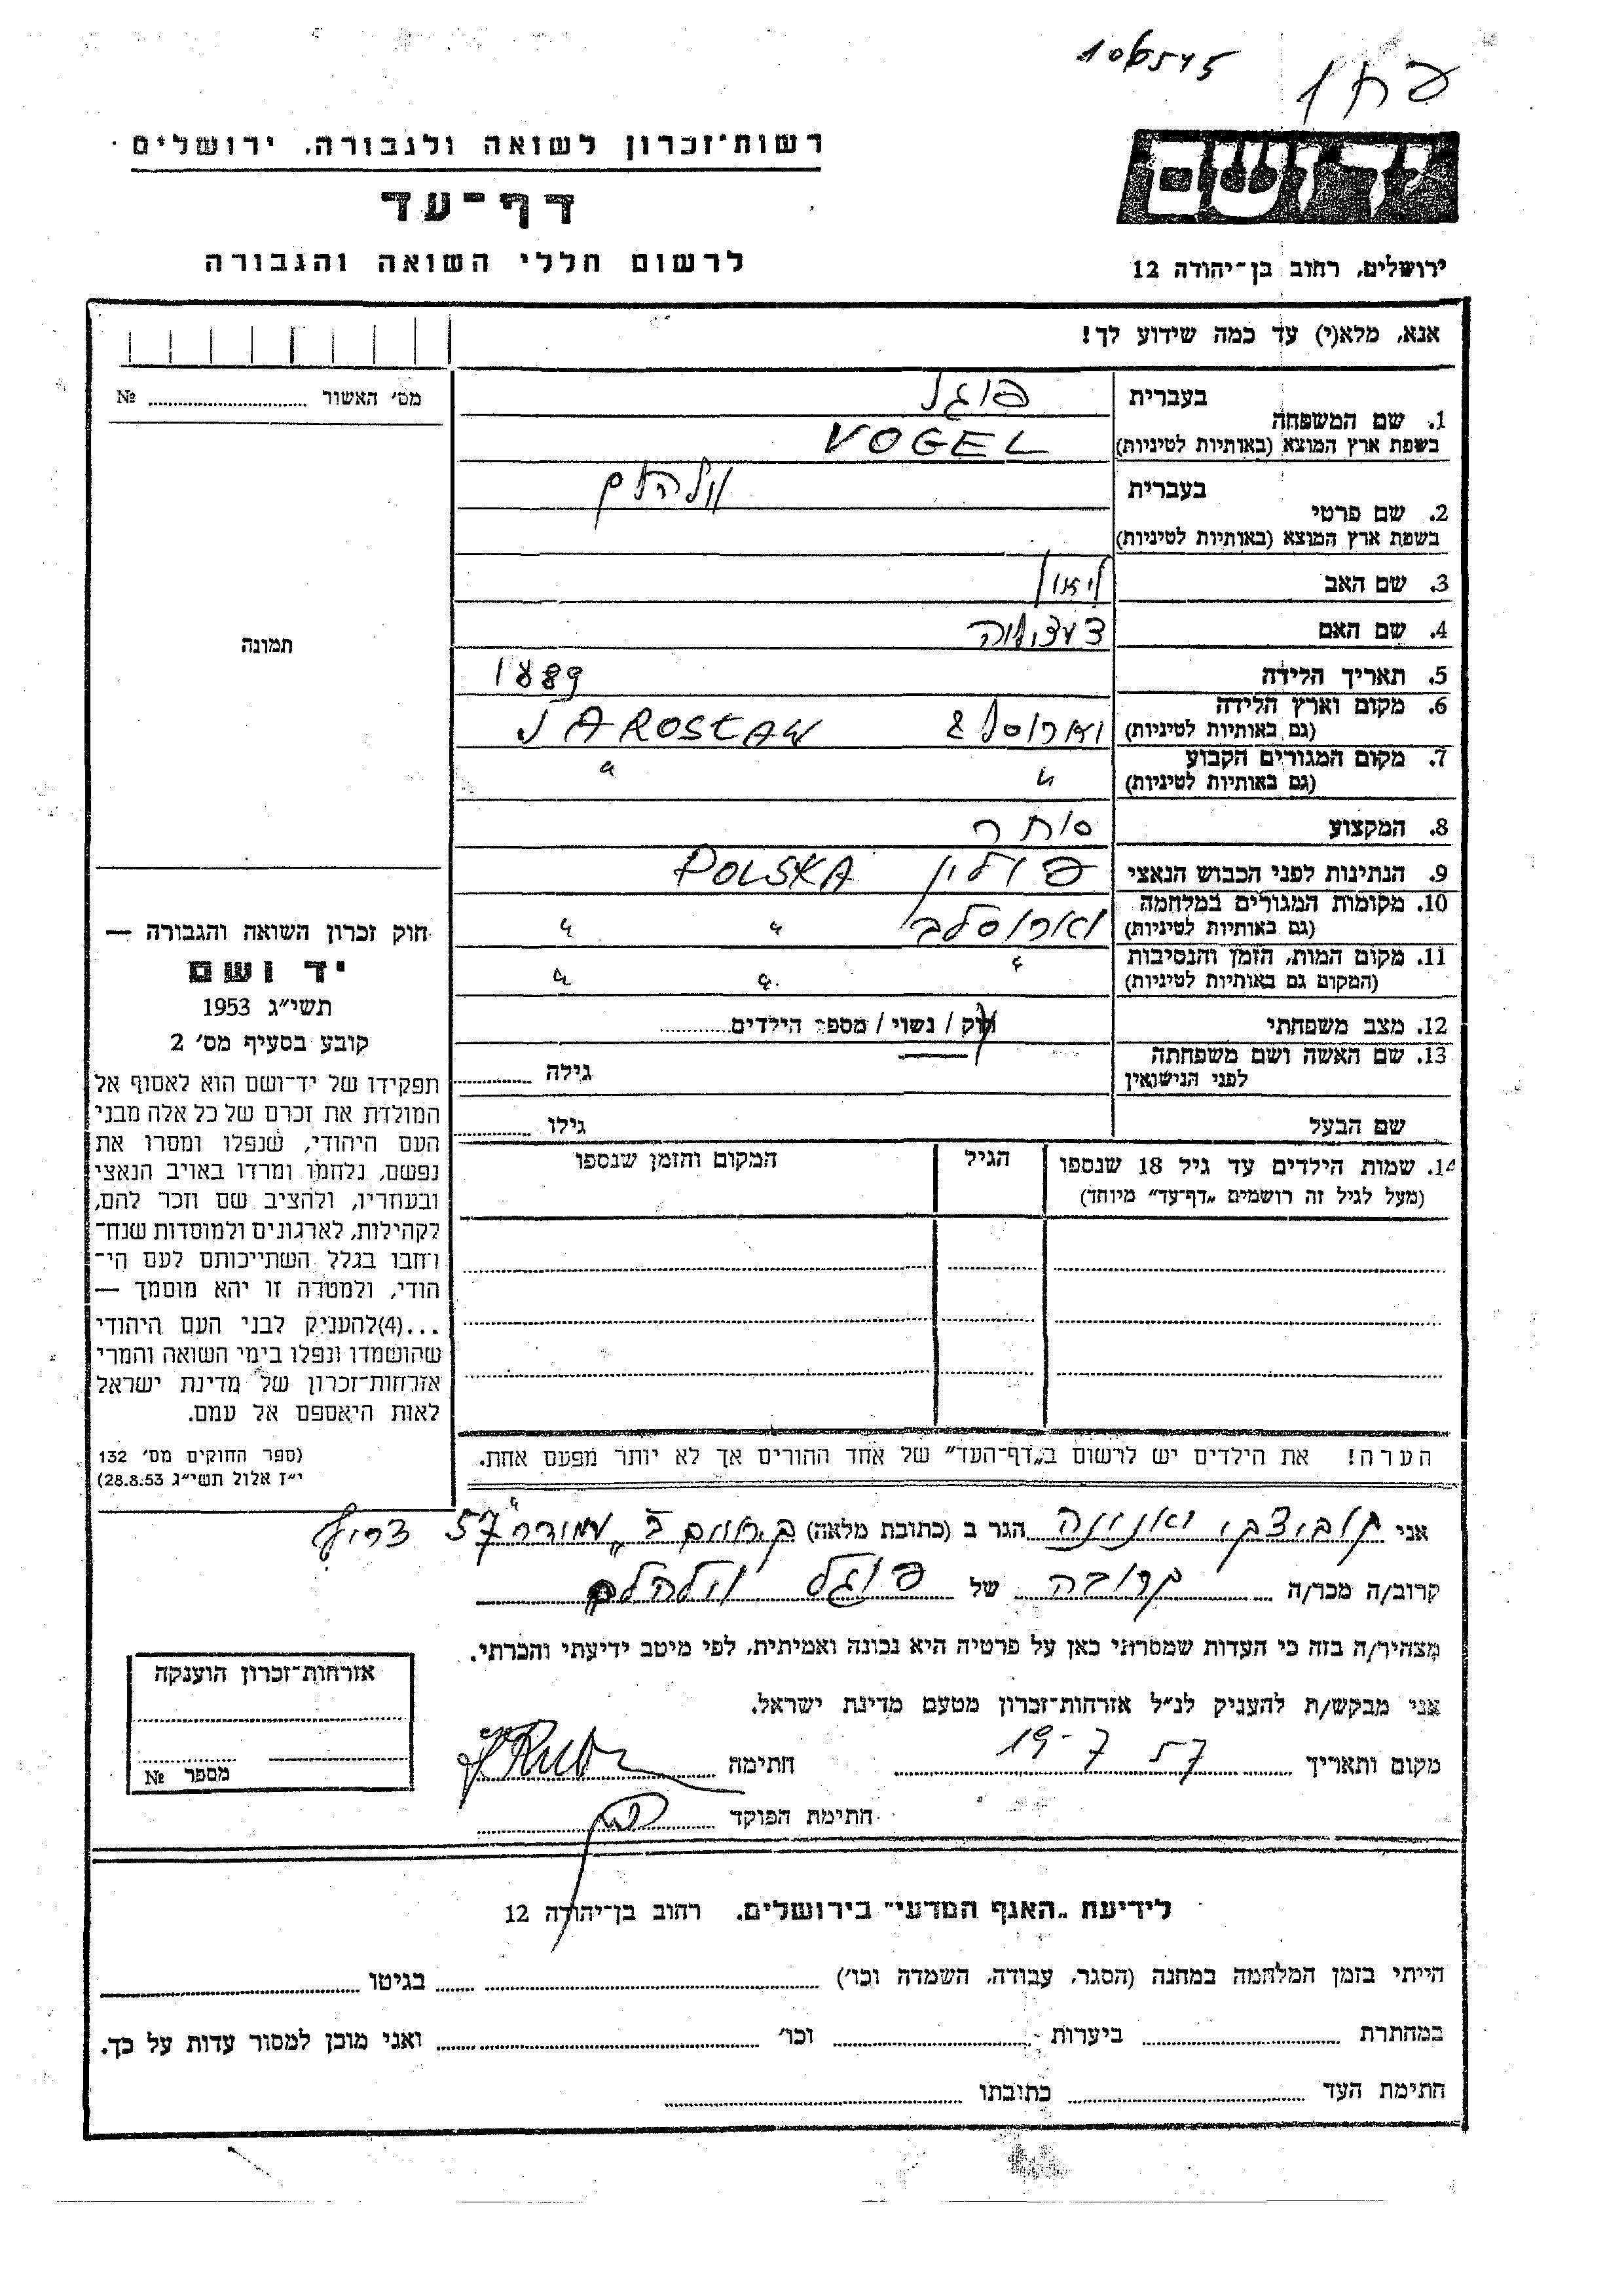 106545
רשות־זכרון לשואה ולגבורה, ירושלים
דף־עד
לרשום חללי השואה והגבורה
יד ושם
ירושלים, רחוב בן־יהודה 12
אנא, מלא(י) עד כמה שידוע לך!
מס׳ האשור № 
תמונה
חוק זכרון השואה והגבורה —
יד ושם
תשי״ג 1953
קובע בסעיף מס׳ 2
תפקידו של יד־ושם הוא לאסוף אל
המולדת את זכרם של כל אלה מבני
העם היהודי, שנפלו ומסרו את
נפשם, נלחמו ומרדו באויב הנאצי
ובעוזריו, ולהציב שם וזכר להם,
לקהילות, לארגונים ולמוסדות שנח־
רחבו בגלל השתייכותם לעם הי־
הודי, ולמטרה זו יהא מוסמך —
...(4)להעניק לבני העם היהודי
שהושמדו ונפלו בימי השואה והמרי
אזרחות־זכרון של מדינת ישראל
לאות היאספם אל עמם.
(ספר החוקים מס׳ 132
י״ז אלול תשי״ג 28.8.53)
1. שם המשפחה
בעברית פוגל
בשפת ארץ המוצא (באותיות לטיניות) VOGEL
2. שם פרטי
בעברית וילהלם
בשפת ארץ המוצא (באותיות לטיניות)
3. שם האב ליאון
4. שם האם
5. תאריך הלידה 1889
6. מקום וארץ הלידה
(גם באותיות לטיניות) יארוסלב JAROSŁAW
7. מקום המגורים הקבוע
(גם באותיות לטיניות) " "
8. המקצוע סוחר
9. הנתינות לפני הכבוש הנאצי פולין POLSKA
10. מקומות המגורים במלחמה
(גם באותיות לטיניות) יארוסלב " "
11. מקום המות, הזמן והנסיבות
(המקום גם באותיות לטיניות) " " "
12. מצב משפחתי רוק / נשוי / מספר הילדים
13. שם האשה ושם משפחתה
לפני הנישואין גילה
שם הבעל גילו
14. שמות הילדים עד גיל 18 שנספו הגיל המקום והזמן שנספו
(מעל לגיל זה רושמים „דף־עד״ מיוחד)
הערה! את הילדים יש לרשום ב„דף־העד״ של אחד ההורים אך לא יותר מפעם אחת.
אני הגר ב (כתובת מלאה) 57
קרוב/ה מכר/ה קרובה של פוגל וילהלם
מצהיר/ה בזה כי העדות שמסרתי כאן על פרטיה היא נכונה ואמיתית, לפי מיטב ידיעתי והכרתי.
אני מבקש/ת להעניק לנ״ל אזרחות־זכרון מטעם מדינת ישראל.
מקום ותאריך 19-7 57 חתימה
חתימת הפוקד
אזרחות־זכרון הוענקה
מספר №
לידיעת „האגף המדעי״ בירושלים, רחוב בן־יהודה 12
הייתי בזמן המלחמה במחנה (הסגר, עבודה, השמדה וכו׳) בגיטו
במחתרת ביערות וכו׳ ואני מוכן למסור עדות על כך.
חתימת העד כתובתו